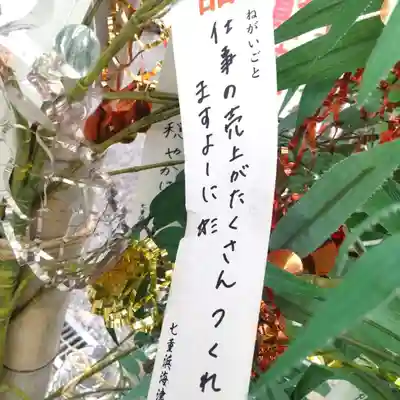 ねがいごと
仕事の売上がたくさん つくれ
ますよーに
七重浜海津